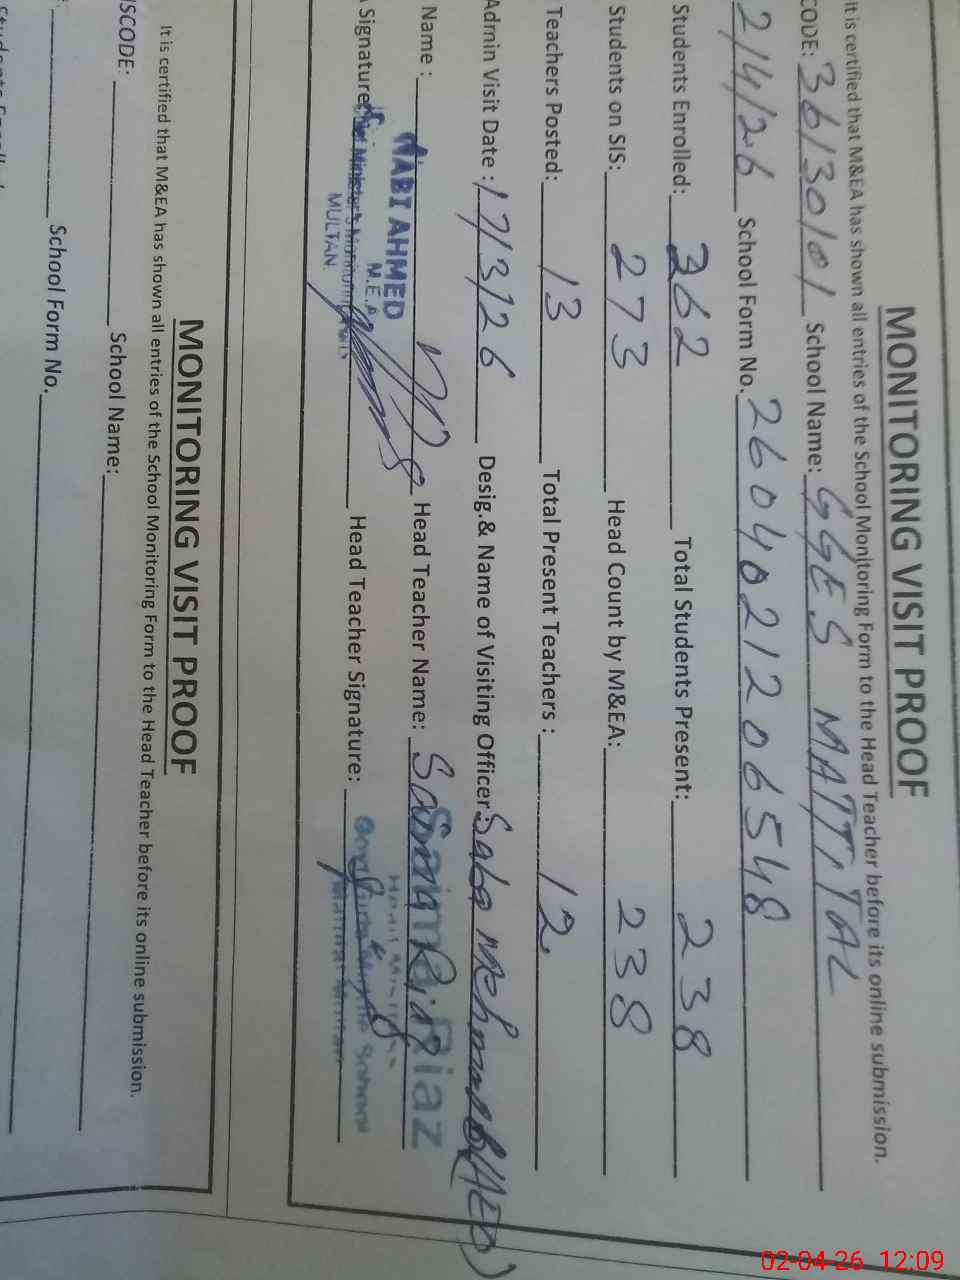 MONITORING VISIT PROOF
It is certified that M&EA has shown all entries of the School Monitoring Form to the Head Teacher before its online submission.
CODE: 36130101 School Name: GGES MATTITAL
2/4/26 School Form No. 26040212206548
Students Enrolled: 362 Total Students Present: 238
Students on SIS: 273 Head Count by M&EA: 238
Teachers Posted: 13 Total Present Teachers : 12
Admin Visit Date : 17/3/26 Desig.& Name of Visiting Officer: Saba
Name : NABI AHMED Head Teacher Name: Saima Riaz
M.E.A
Signature: Head Teacher Signature:
Chief Minister's Monitoring
MULTAN.
MONITORING VISIT PROOF
It is certified that M&EA has shown all entries of the School Monitoring Form to the Head Teacher before its online submission.
ISCODE: School Name:
School Form No.
02-04-26 12:09